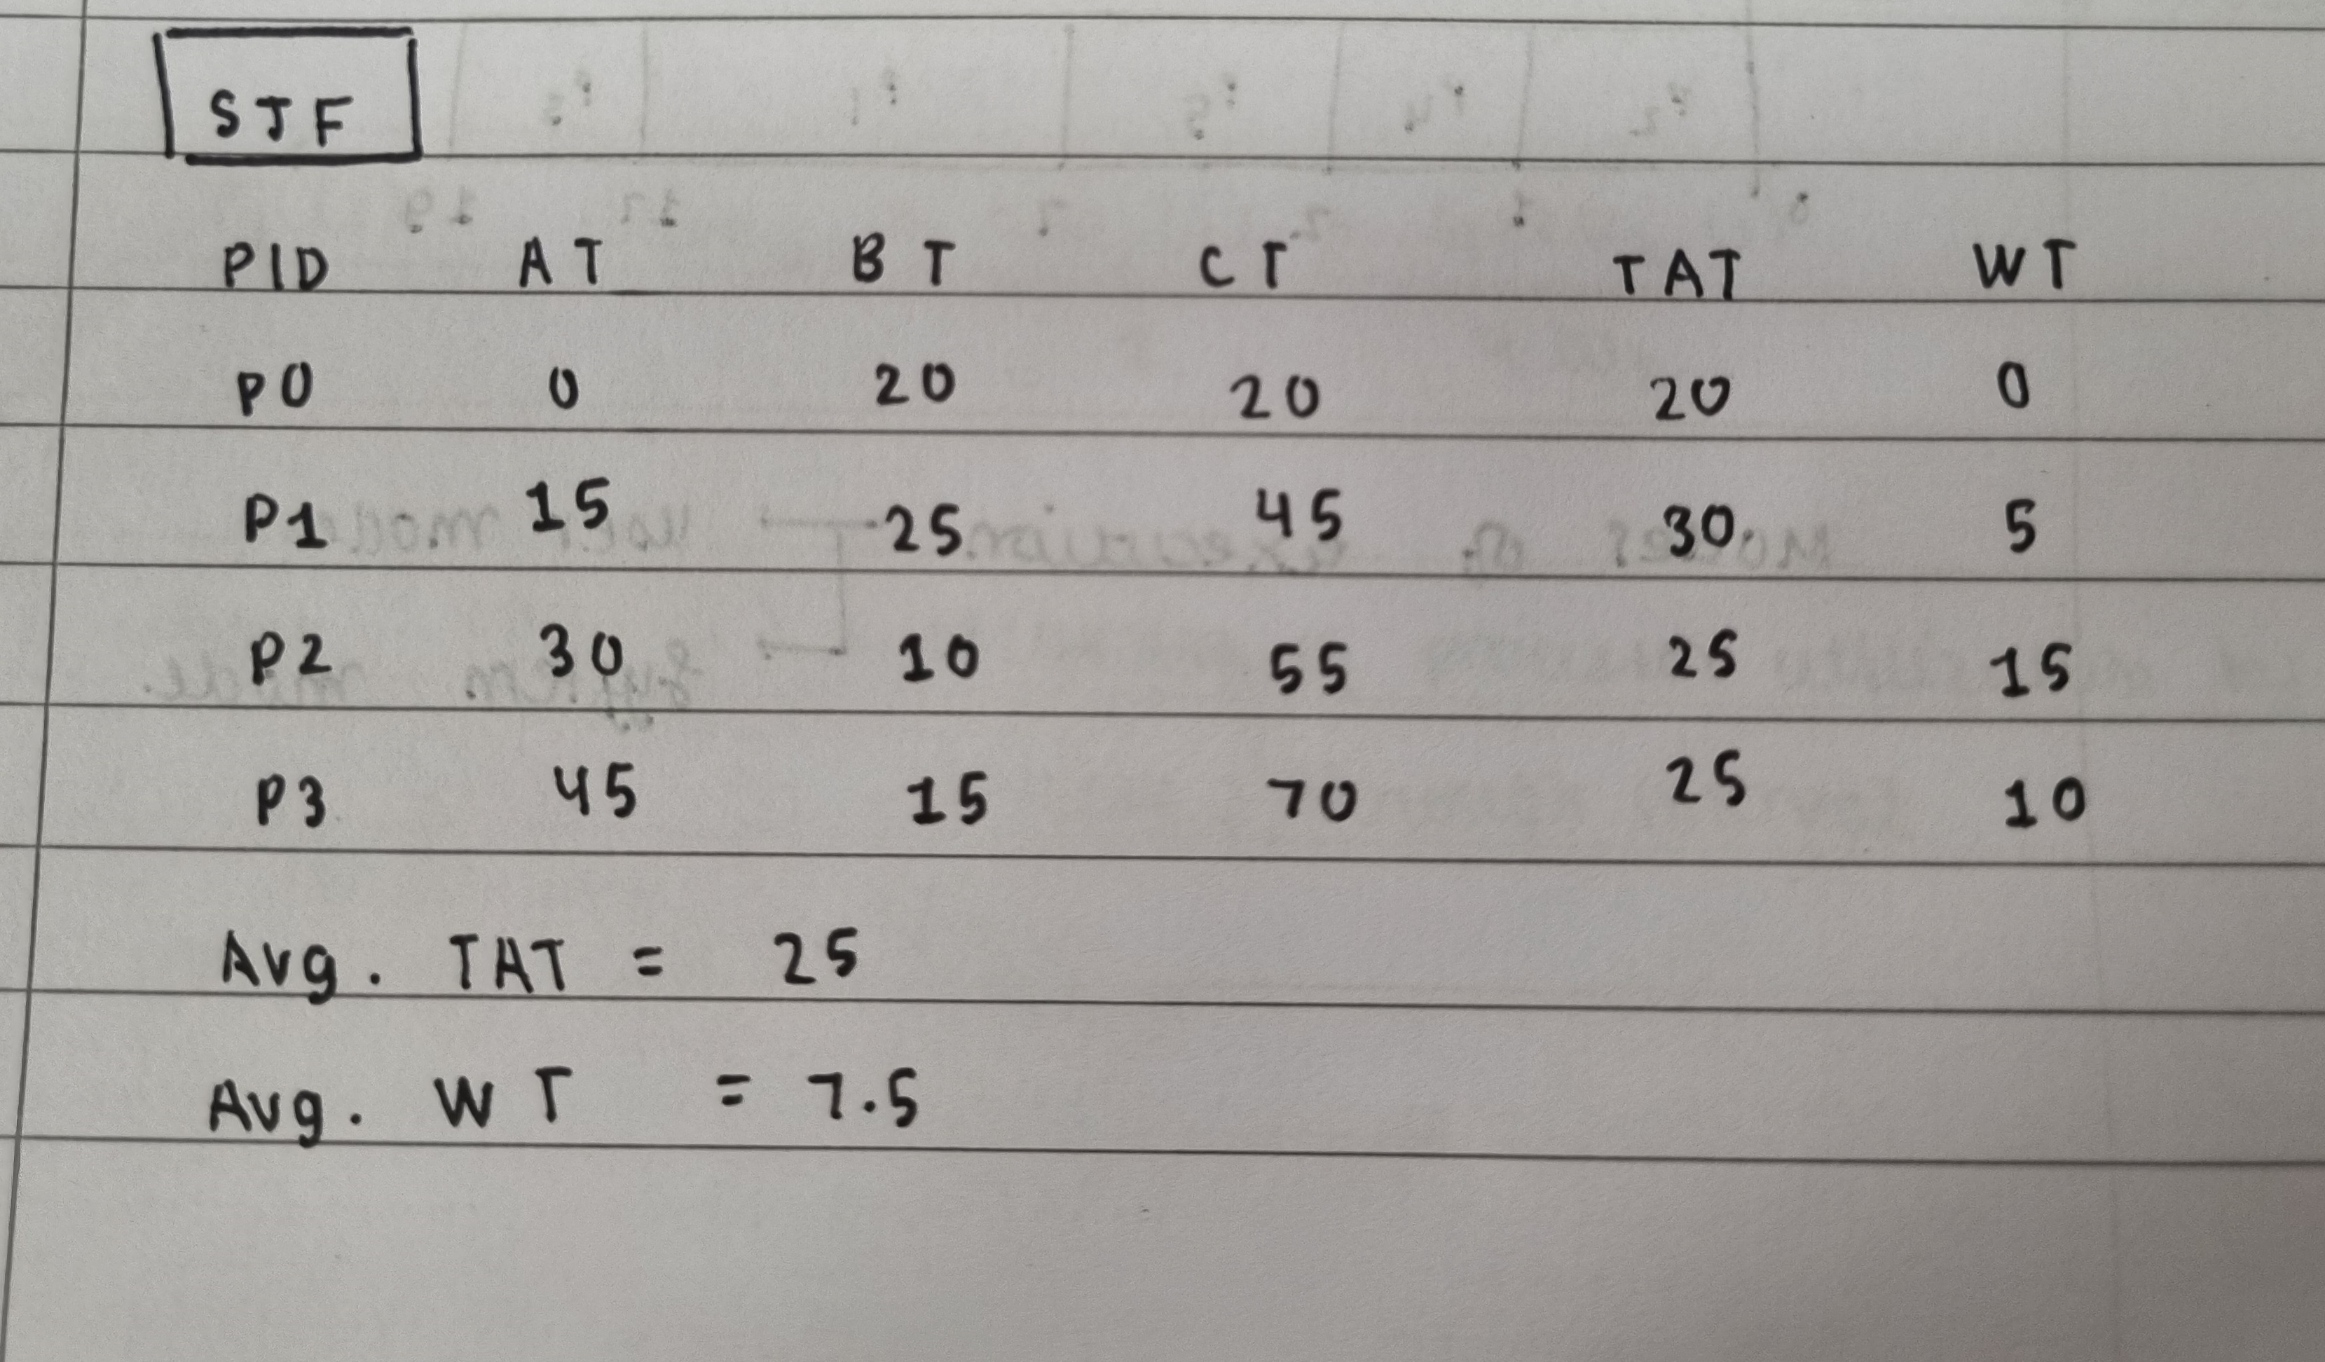 SJF
PID AT BT CT TAT WT
P0 0 20 20 20 0
P1 15 25 45 30 5
P2 30 10 55 25 15
P3 45 15 70 25 10
Avg. TAT = 25
Avg. WT = 7.5